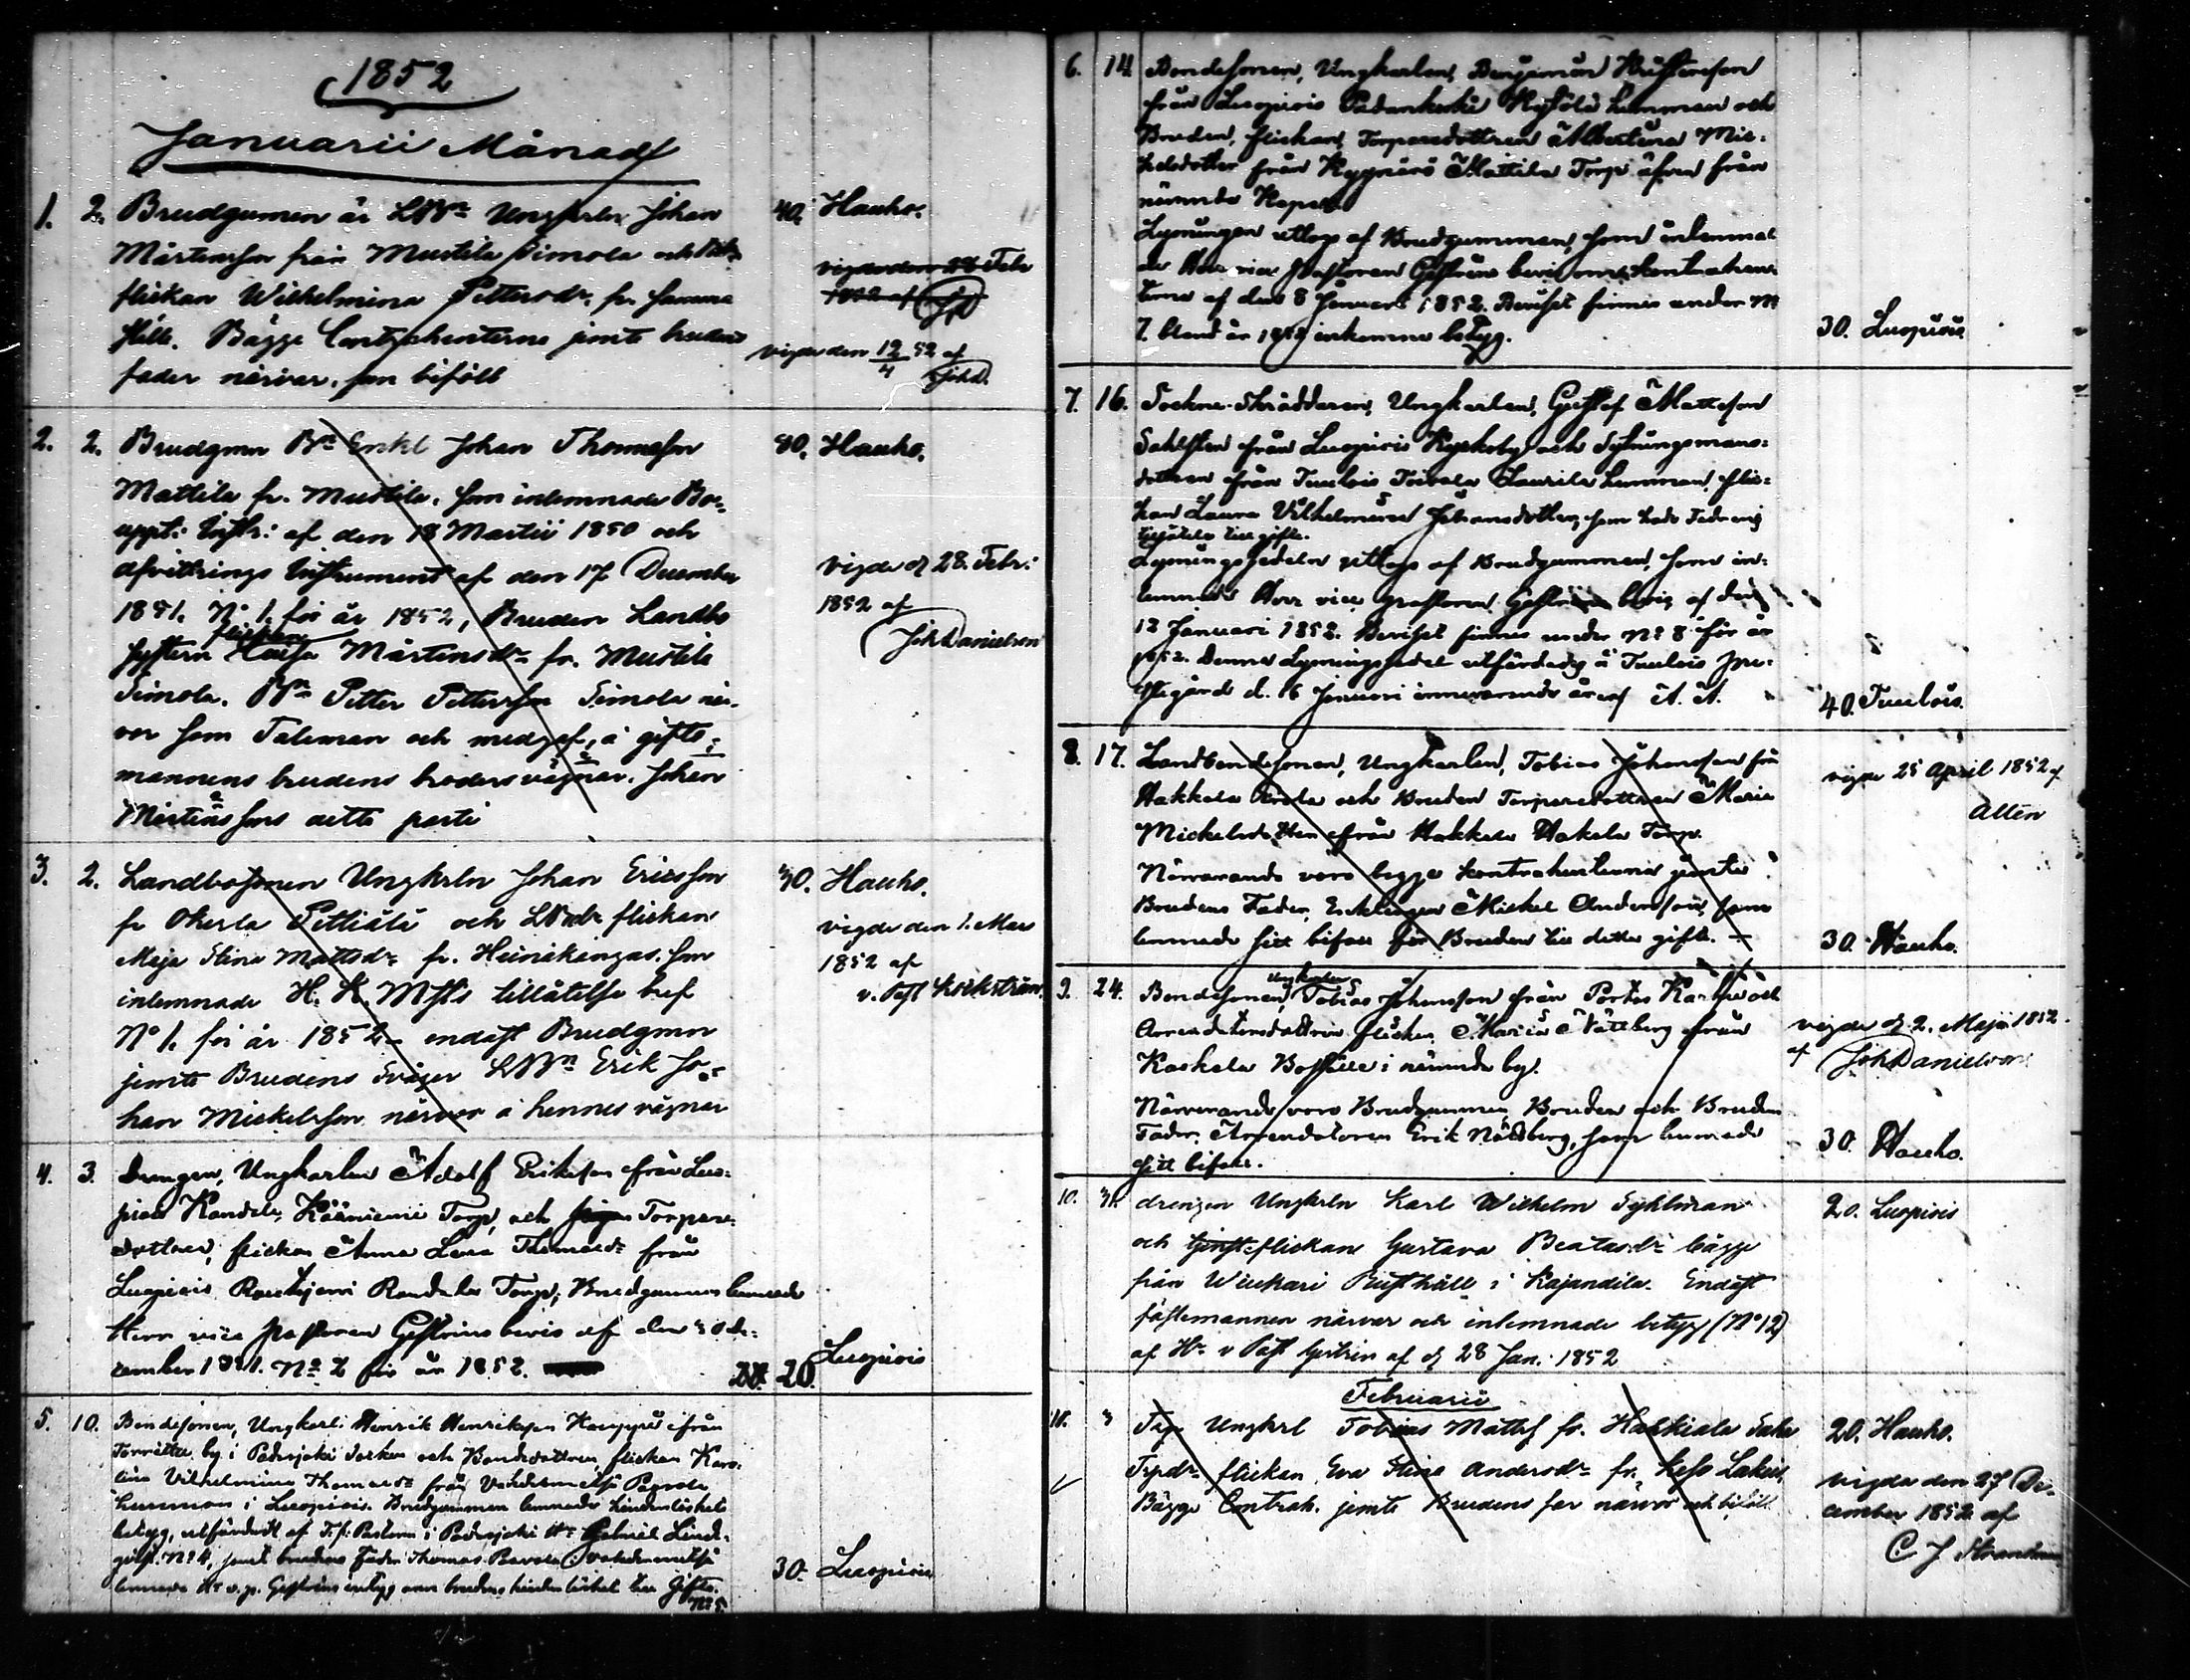 1852
Januarii Månad
1. 2. Brudgumen är LBn Ungkarln Johan 40. Hauho.
Mårtensson från Mustila Simola och
flickan Wilhelmina Pettersdr. fr. samma
ställe. Bägge Contrahenterne jemte brudens
fader närvar. som biföll
vigde den 28 Febr
1852 af
vigde den 12/4 52 af
JohD.
2. 2. Brudgmn Bn Enkl Johan Thomasson 40. Hauho.
Mattila fr. Mustila. som inlemnade Bo-
uppt: Instr: af den 18 Martii 1850 och
afvittrings Instrument af den 17 December
1851. No 1. för år 1852, Bruden Landbo
flickan
systern Mårtensdr fr. Mustila
Simola. Bn Petter Pettersson Simola när-
var som Taleman och medgaf, å gifto-
mannens brudens broders vägnar. Johan
Mårtenssons detta parti
vigde d 28. Febr:
1852 af
JohDanielson
3. 2. Landbosonen Ungkrln Johan Ericsson 30. Hauho.
fr Okerla Pettiälä och LBndr flickan
Maja Stina Mattsdr fr. Heinikangas. som
inlemnade H. K. Mjts tillåtelse bref
No 1. för år 1852 - endast Brudgmn
jemte Brudens Svåger LBn Erik Jo-
han Mickelsson närvar å hennes vägnar
vigde den 1. Mars
1852 af
v. Past Eckström
4. 3. Drengen, Ungkarlen Adolf Eriksson från Luo-
piois Kandola, Torp, och Torpare-
dottren, flickan Anna Lena Thomasdr från
Luopiois Rautajervi Torp; Brudgummen lemnade
Herr vice pastoren Gestrins bevis af den 30 de-
cember 1851. No 2 för år 1852. 20. Luopiois
5. 10. Bondesonen, Ungkarl: Henrik Henriksson ifrån
Torrittu by i Padasjoki Socken och Bondedottren, flickan Karo-
lina Vilhelmina Thomasdr från
hemman i Luopiois. Brudgummen lemnade hinderslöshets
betyg, utfärdadt af T.f. Pastorn i Padasjoki Hr Gabriel Lind-
No 4, samt brudens fader Thomas
lemnade Hr v.p. Gestrins intyg om brudens till Gifte.
No 5. 30. Luopiois
6. 14. Bondesonen, Ungkarlen, Benjamin Kristersson
från Luopiois Padankoski hemman och
Bruden, flickan, Torparedottren Albertina Mic-
kelsdotter från Mattila Torp äfven från
nämnde Kapell.
Lysningen uttogs af Brudgummen, som inlemna-
de Herr vice pastoren Gestrins bevis om kontrahen-
terne af den 8 Januari 1852. Beviset finnes under No
7. bland år 1852 inkomne betyg. 30. Luopiois
7. 16. Sockne-Skräddaren, Ungkarlen, Gustaf Mattsson
Sahlsten från Luopiois Kyrkoby och
dottren från Tuulois Toivola Laurila hemman, flic-
kan Laura Vilhelmina Johansdotter, som hade Faderns
tillåtelse till gifte.
Lysningssedeln uttogs af Brudgummen, som in-
lemnade Herr vice pastoren Gestrins bevis af den
12 Januari 1852. Beviset finnes under No 8 för år
1852. Denna Lysningssedel utfärdades å Tuulois pre-
stgård d. 16 Januari innevarande år af A. A. 40. Tuulois.
8. 17. Landbondesonen, Ungkarlen, Tobias Johansson från
Hakkala och Bruden Torparedottren Maria
Mickelsdotter från Hakkala Hakala Torp.
Närvarande voro bägge kontrahenterne jämte
Brudens Fader, Enklingen Mickel Andersson, som
lemnade sitt bifall för Bruden till detta gifte. 30. Hauho.
vigde 25 April 1852 af
Allén
9. 24. Bondesonen, Ungkarlen Tobias Johansson från Portas och
Arrendatorsdottren flickan Maria Nättberg från
Boställe i nämnde by.
Närvarande voro Brudgummen, Bruden och Brudens
Fader, Arrendatoren Erik Nättberg, som lemnade
sitt bifall. 30. Hauho.
vigde d 2. Maji 1852
af JohDanielson
10. 31. drengen Ungkrln Karl Wilhelm Sylman 20. Luopiois
och flickan Gustava Beatasdr bägge
från Rusthåll i Kajandila. Endast
fästemannen närvar och inlemnade betyg (No 12)
af Hr v Past Gestrin af d 28 Jan. 1852
Februarii
10. 3 Ungkrl Tobias Matts fr. Hakkiala 20. Hauho.
flickan Eva Stina Andersdr fr.
Bägge Contrah. jemte Brudens far närvar och biföll
vigde den 27 De-
cember 1852 af
C J